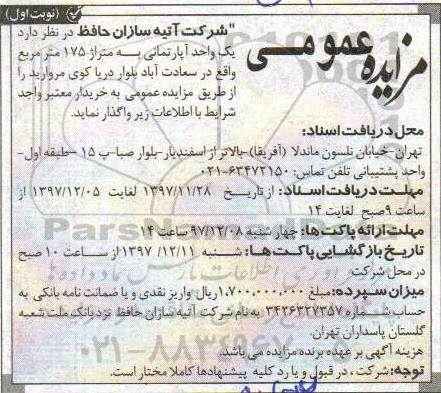 (نوبت اول)
مزایده عمومی
"شرکت آتیه سازان حافظ در نظر دارد
یک واحد آپارتمانی به متراژ ۱۷۵ متر مربع
واقع در سعادت آباد بلوار دریا کوی مروارید را
از طریق مزایده عمومی به خریدار معتبر واجد
شرایط با اطلاعات زیر واگذار نماید.
محل دریافت اسناد:
تهران-خیابان نلسون ماندلا (آفریقا)-بالاتر از اسفندیار-بلوار صبا-پ ۱۵ -طبقه اول-
واحد پشتیبانی تلفن تماس: ۶۳۴۷۲۱۵۰-۰۲۱
مهلت دریافت اسناد: از تاریخ ۱۳۹۷/۱۱/۲۸ لغایت ۱۳۹۷/۱۲/۰۵ از
ساعت ۹ صبح لغایت ۱۴
مهلت ارائه پاکت ها: چهار شنبه ۹۷/۱۲/۰۸ ساعت ۱۴
تاریخ بازگشایی پاکت ها: شنبه ۱۳۹۷/۱۲/۱۱ از ساعت ۱۰ صبح
در محل شرکت
میزان سپرده: مبلغ ۱،۷۰۰،۰۰۰،۰۰۰ ریال واریز نقدی و یا ضمانت نامه بانکی به
حساب شماره ۳۴۲۶۳۲۷۳۵۷ به نام شرکت آتیه سازان حافظ نزد بانک ملت شعبه
گلستان پاسداران تهران.
هزینه آگهی بر عهده برنده مزایده می باشد.
توجه: شرکت ، در قبول و یا رد کلیه پیشنهادها کاملا مختار است.
ParsNamadData
۰۲۱-۸۸۳۴۹۶۷